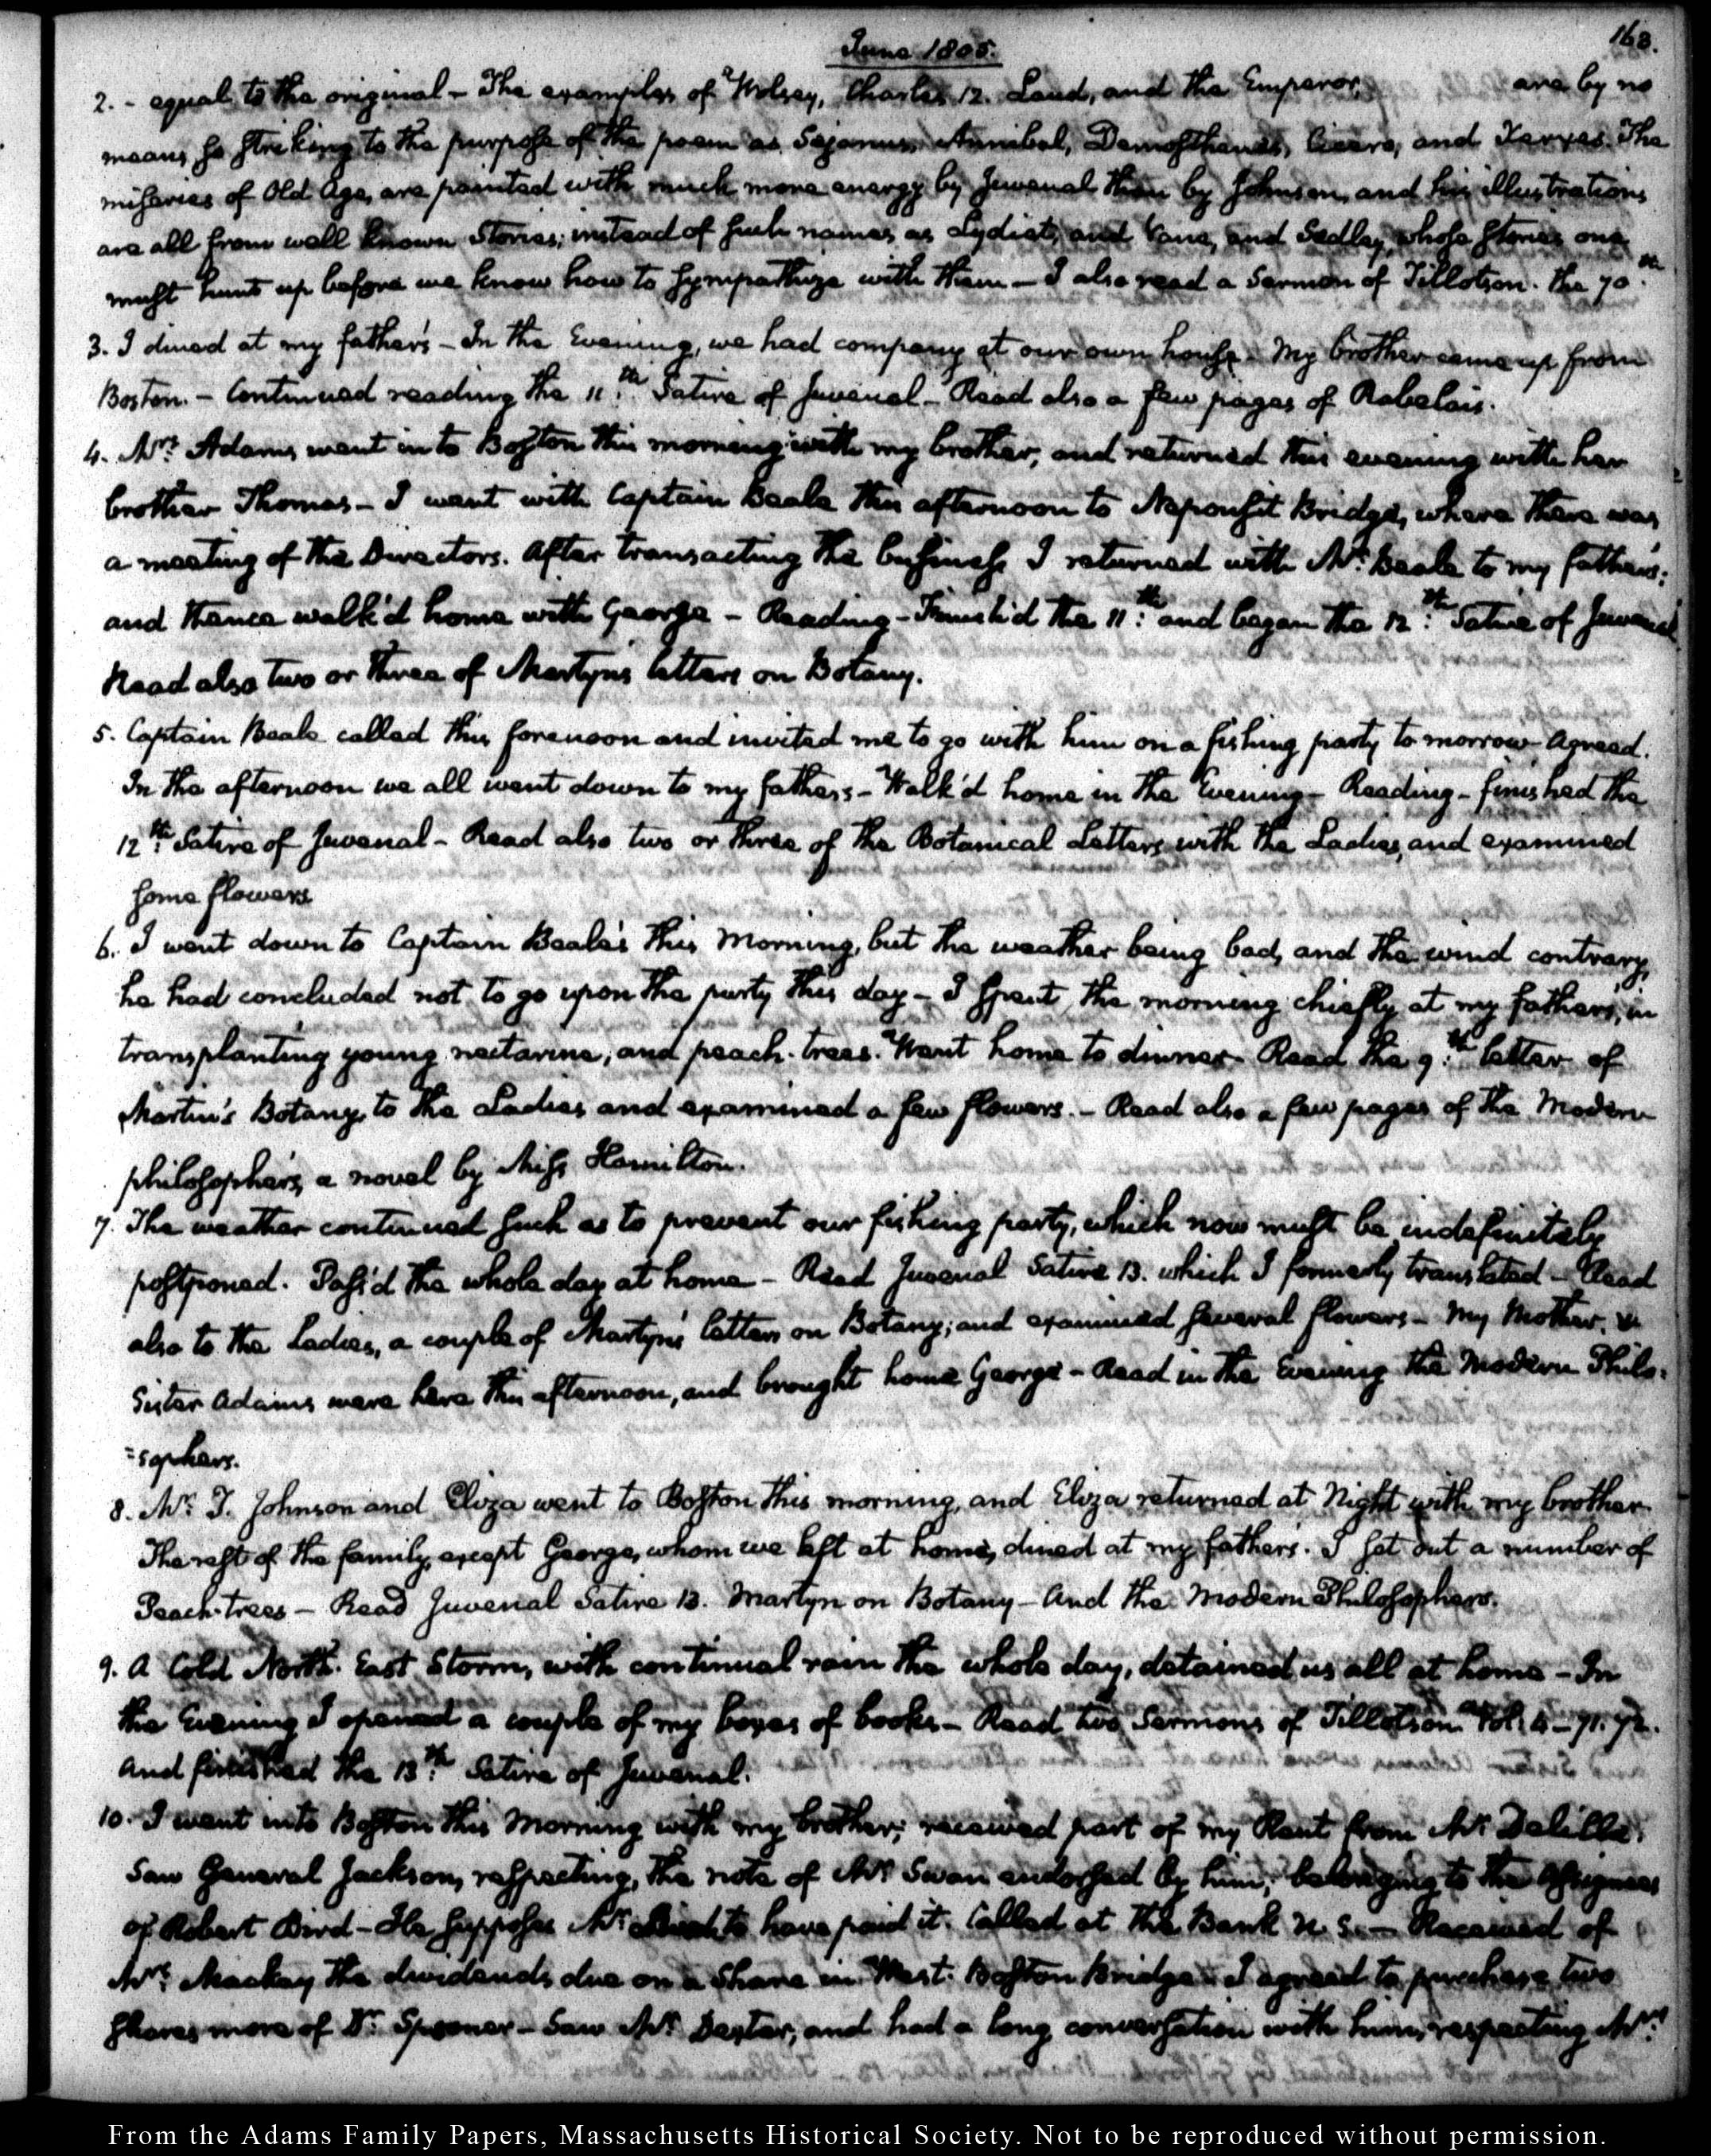 163.
June 1805.
2. - equal to the original - The examples of Wolsey, Charles 12. Laud, and the Emperor, are by no
means so striking to the purpose of the poem as Sejanus, Annibal, Demosthenes, Cicero, and Xerxes. The
miseries of Old Age, are painted with much more energy by Juvenal than by Johnson, and his illustrations
are all from well known Stories; instead of such names as Lydiat, and Vane, and Sedley, whose stories one
must hunt up before we know how to sympathize with them - I also read a Sermon of Tillotson. the 70th.
3. I dined at my father's - In the Evening, we had company at our own house - My brother came up from
Boston. - Continued reading the 11th. Satire of Juvenal - Read also a few pages of Rabelais.
4. Mrs. Adams went in to Boston this morning with my brother, and returned this evening with her
brother Thomas - I went with Captain Beale this afternoon to Neponsit Bridge, where there was
a meeting of the Directors. After transacting the business I returned with Mr. Beale to my father's;
and thence walk'd home with George - Reading - Finish'd the 11th. and began the 12th. Satire of Juvenal
Read also two or three of Martyn's letters on Botany.
5. Captain Beale called this forenoon and invited me to go with him on a fishing party to morrow - Agreed.
In the afternoon we all went down to my father's - Walk'd home in the Evening - Reading - finished the
12th. Satire of Juvenal - Read also two or three of the Botanical Letters with the Ladies, and examined
some flowers
6. I went down to Captain Beale's this Morning, but the weather being bad, and the wind contrary,
he had concluded not to go upon the party this day - I spent the morning chiefly at my father's, in
transplanting young nectarine, and peach-trees. Went home to dinner - Read the 9th. letter of
Martin's Botany to the Ladies and examined a few flowers. - Read also a few pages of the Modern
philosophers, a novel by Miss Hamilton.
7. The weather continued such as to prevent our fishing party, which now must be indefinitely
postponed. Pass'd the whole day at home - Read Juvenal Satire 13. which I formerly translated - Read
also to the Ladies, a couple of Martyn's letters on Botany; and examined several flowers - My Mother, &
Sister Adams were here this afternoon, and brought home George - Read in the Evening the Modern Philo-
=sophers.
8. Mr. T. Johnson and Eliza went to Boston this morning, and Eliza returned at Night with my brother.
The rest of the family, except George, whom we left at home, dined at my father's. I set out a number of
Peach-trees - Read Juvenal Satire 13. Martyn on Botany - And the Modern Philosophers.
9. A Cold North-East Storm, with continual rain the whole day, detained us all at home - In
the Evening I opened a couple of my boxes of books - Read two Sermons of Tillotson Vol. 4 - 71. 72.
And finished the 13th. Satire of Juvenal.
10. I went into Boston this Morning with my brother; received part of my Rent from Mr. Delille.
Saw General Jackson, respecting, the note of Mr. Swan endorsed by him, belonging to the Assignees
of Robert Bird - He supposes Mr. Bird to have paid it. Called at the Bank U. S. - Received of
Mrs. Mackay the dividends due on a Share in West-Boston Bridge - I agreed to purchase two
shares more of Dr. Spooner - Saw Mr. Dexter, and had a long conversation with him, respecting Mrs.
From the Adams Family Papers, Massachusetts Historical Society. Not to be reproduced without permission.